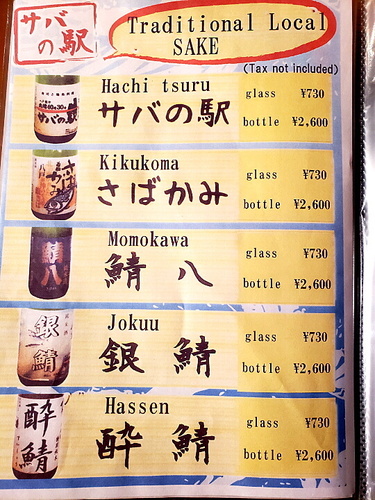 サバ
の駅
Traditional Local
SAKE
(Tax not included)
Hachi tsuru
サバの駅
glass ¥730
bottle ¥2,600
サバの駅
Kikukoma
さばかみ
glass ¥730
bottle ¥2,600
Momokawa
鯖 八
glass ¥730
bottle ¥2,600
鯖八
Jokuu
銀 鯖
glass ¥730
bottle ¥2,600
銀
鯖
Hassen
酔 鯖
glass ¥730
bottle ¥2,600
酔
鯖